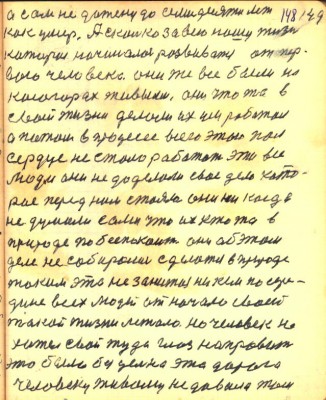 а сам не дотенуло семидесяти лет 148/149
как умер. А сколко за всю нашу жизн
которая начиналас розвиватя от пер-
вого человека. они же все были на
которах живыми, они что та в
своей жизни делали их ум работал
а потом в процессе всего этого их
сердце не стало работат эти все
люди они не доделали свое дело кото-
рае перед ним стояла они ни когда
не думали сами что их кто та в
природе побеспакоит они об этом
деле не собиралис сделат в природе
таким эта не занятая ни кем по сере-
дине всех людей от начало своей
такой жизни летало. Но человек не
хател свой туда глаз направит
это было бы целна эта дорога
человеку живому не давала там